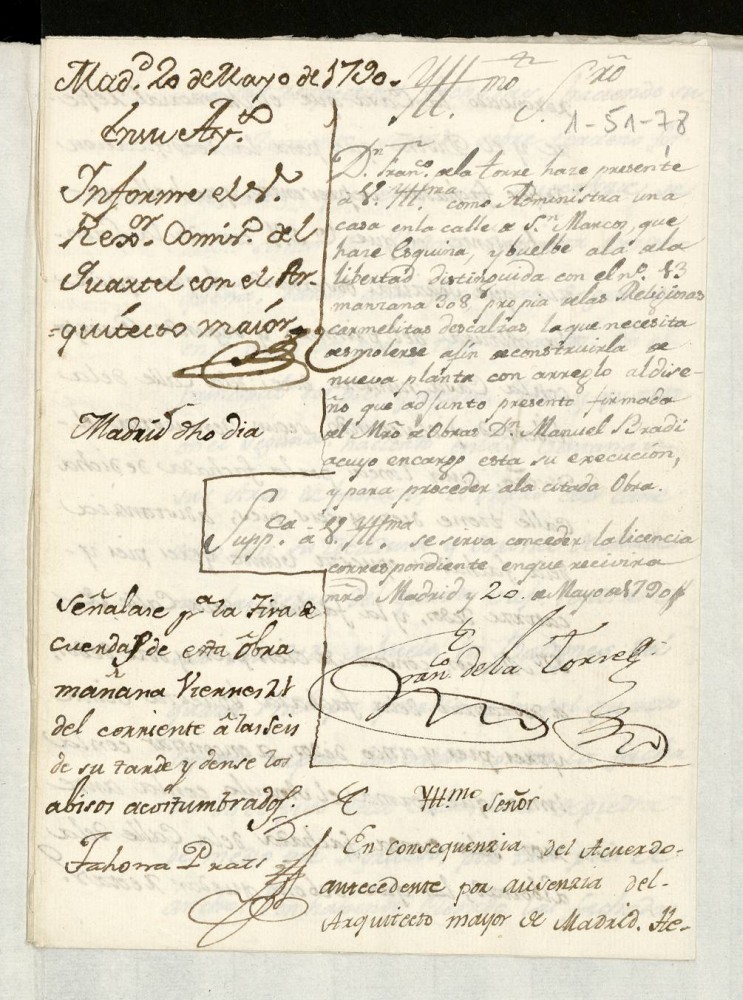 Mad.d 20 de Mayo de 1790.
En su Ay.to
Informe el S.r
Rex.or Comis.o del
Quartel con el Ar-
=quitecto maior
Madrid dho dia
Señalase p.a la Tira de
cuerdas de esta Obra
mañana Viernes 21
del corriente á las seis
de su tarde y dense los
abisos acostumbrados.
Yllmo Sr
1-51-78
D.n Fran.co de la Torre haze presente
a V. Yllma como Administra una
casa en la calle de S.n Marcos, que
haze Esquina, y buelbe ala de la
libertad distinguida con el n.o 13
manzana 308, propia de las Religiosas
carmelitas descalzas, la que necesita
demolerse afin de construirla de
nueva planta con arreglo al dise-
ño que adjunto presento firmada
del Mro de Obras D.n Manuel Bradi
acuyo encargo esta su execución,
y para proceder ala citada Obra.
Supp.ca a V. Yllma se sirva conceder la licencia
correspondiente en que recivira
mrd Madrid y 20 de Mayo de 1790
Fran.co de la Torre
Yllmo Señor
En consequenzia del Acuerdo
antecedente por ausenzia del
Arquitecto mayor de Madrid. He-